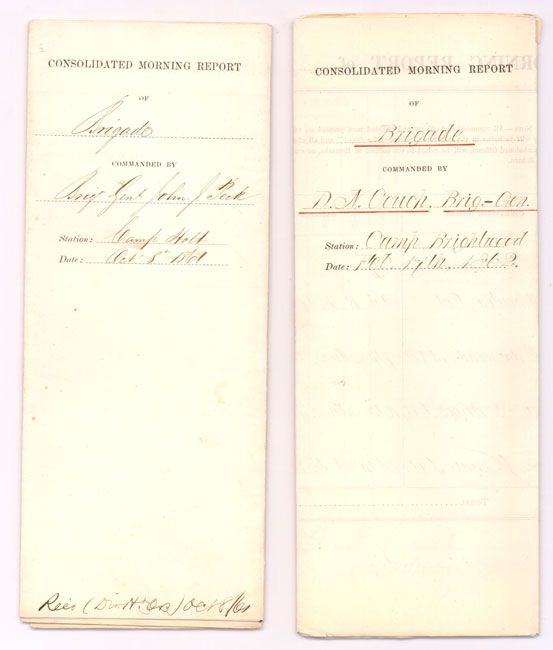 CONSOLIDATED MORNING REPORT
OF
Brigade
COMMANDED BY
Brig Genl John J Peck
Station: Camp Holt
Date: Oct 8th 1861
Rec'd (Div. Hd. Qrs) Oct 8/61
CONSOLIDATED MORNING REPORT
OF
Brigade
COMMANDED BY
D. N. Couch, Brig-Gen.
Station: Camp Brightwood
Date: Feb. 17th, 1862.
TOTAL